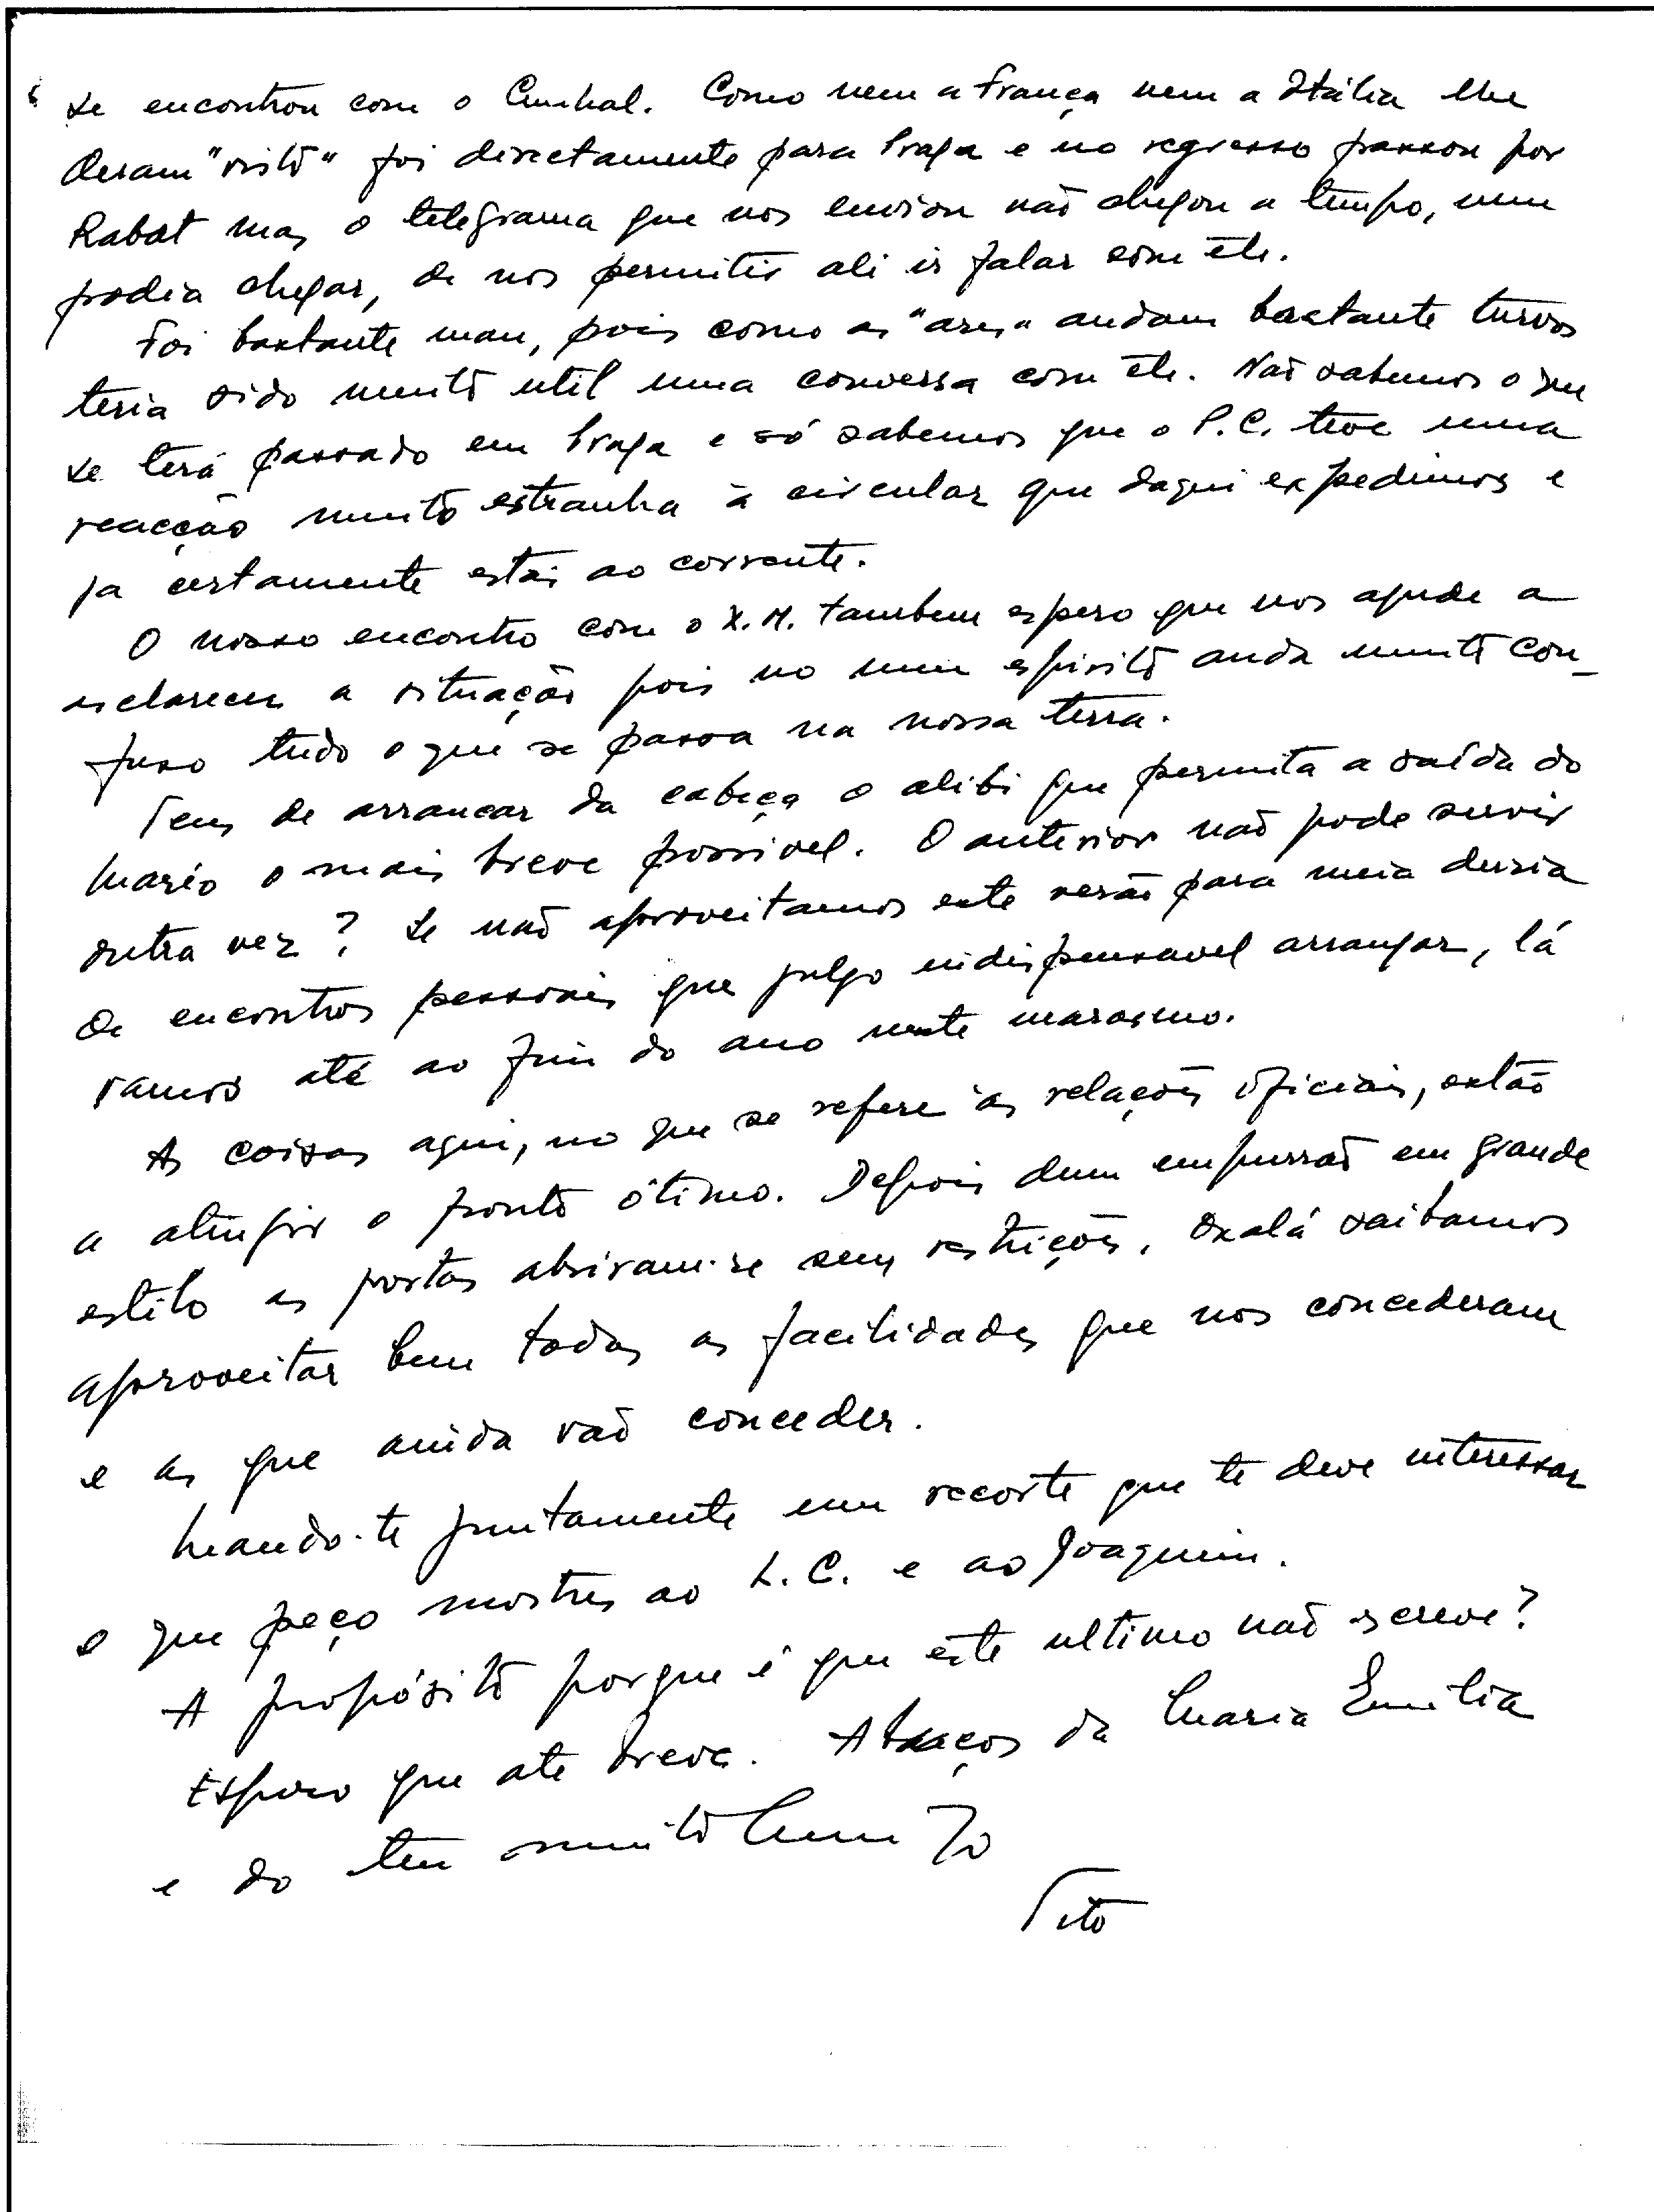 se encontrou com o Cunhal. Como nem a França nem a Itália lhe
deram "visto" foi directamente para Praga e no regresso passou por
Rabat mas o telegrama que nos enviou não chegou a tempo, nem
podia chegar, de nos permitir ali ir falar com êle.
Foi bastante mau, pois como os "ares" andam bastante turvos
teria sido muito util uma conversa com êle. Não sabemos o que
se terá passado em Praga e só sabemos que o P.C. teve uma
reacção muito estranha à circular que daqui expedimos e
ja certamente estás ao corrente.
O nosso encontro com o X.M. tambem espero que nos ajude a
esclarecer a situação pois no meu espirito anda muito con-
fuso tudo o que se passa na nossa terra.
Tens de arrancar da cabeça o alibi que permita a saída do
Mário o mais breve possivel. O anterior não pode servir
outra vez? Se não aproveitamos este verão para meia duzia
de encontros pessoais que julgo indispensavel arranjar, lá
vamos até ao fim do ano neste marasmo.
As coisas aqui, no que se refere às relações oficiais, estão
a atingir o ponto ótimo. Depois dum empurrão em grande
estilo as portas abriram-se sem restrições. Oxalá saibamos
aproveitar bem todas as facilidades que nos concederam
e as que ainda vão conceder.
Mando-te juntamente um recorte que te deve interessar
e que peço mostres ao L.C. e ao Joaquim.
A propósito porque é que êste ultimo não escreve?
Espero que até breve. Abraços da Maria Emilia
e do teu muito
Tito